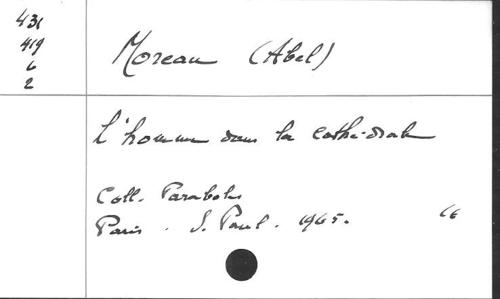 431
419
6
2
Moreau (Abel)
L'homme dans la cathédrale
Coll. Paraboles
Paris. S. Paul. 1965.